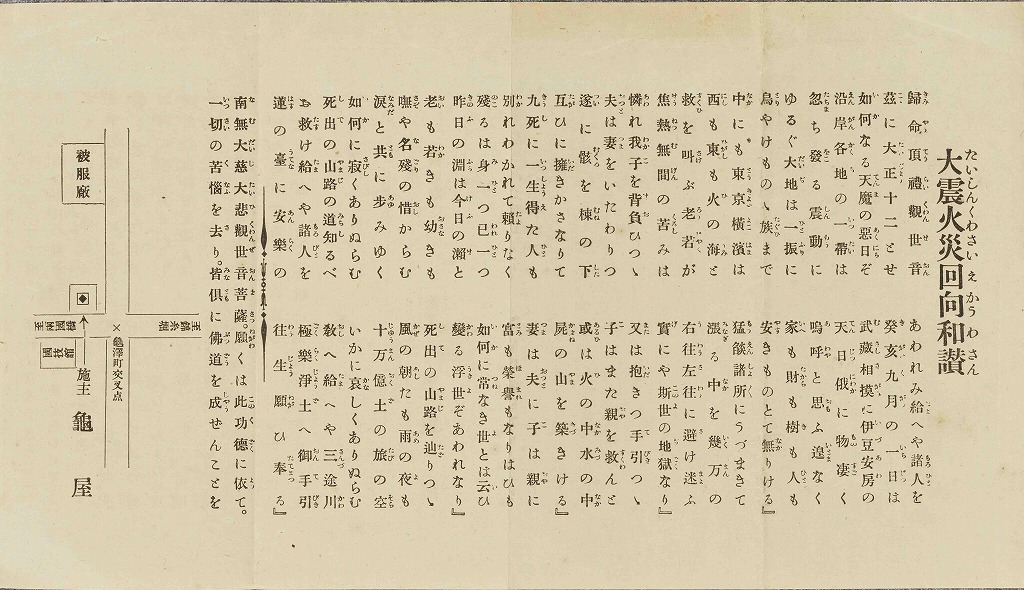 たいしんくわさいえかうわさん
大震火災回向和讃
歸命頂禮觀世音　あわれみ給へや諸人を
茲に大正十二とせ　癸亥九月の一日は
如何なる天魔の惡日ぞ　武藏相摸に伊豆安房の
沿岸各地の一帶は　天日俄に物凄く
忽ち發る震動に　嗚呼と思ふ遑なく
ゆるぐ大地は一振に　家も財も樹も人も
鳥やけものゝ族まで　安きものとて無りける』
中にも東京橫濱は　猛燄諸所にうづまきて
西も東も火の海と　漲る中を幾万の
救を叫ぶ老若が　右往左往に避け迷ふ
焦熱無間の苦みは　實にや斯世の地獄なり』
憐れ我子を背負ひつゝ　又は抱きつ手引つゝ
夫は妻をいたわりつ　子はまた親を救わんと
遂に骸を棟の下　或は火の中水の中
互ひに擁きかさなりて　屍の山を築きける』
九死に一生得た人も　妻は夫に子は親に
別れわかれて賴りなく　富も榮譽もなりはひも
殘るは身一つ已一つ　如何に常なき世とは云ひ
昨日の淵は今日の瀨と　變る浮世ぞあわれなり』
老も若きも幼きも　死出の山路を辿りつゝ
嘸や名殘の惜からむ　風の朝たも雨の夜も
淚と共に步みゆく　十万億土の旅の空
如何に寂くありぬらむ　いかに哀しくありぬらむ
死出の山路の道知るべ　敎へ給へや三途川
救け給へや諸人を　極樂淨土へ御手引
蓮の臺に安樂の　往生願ひ奉る』
南無大慈大悲觀世音菩薩。願くは此功德に依て。
一切の苦惱を去り。皆俱に佛道を成せんことを
被服廠
×龜澤町交叉点
至錦糸堀
至兩國橋
國技館
施主　龜屋